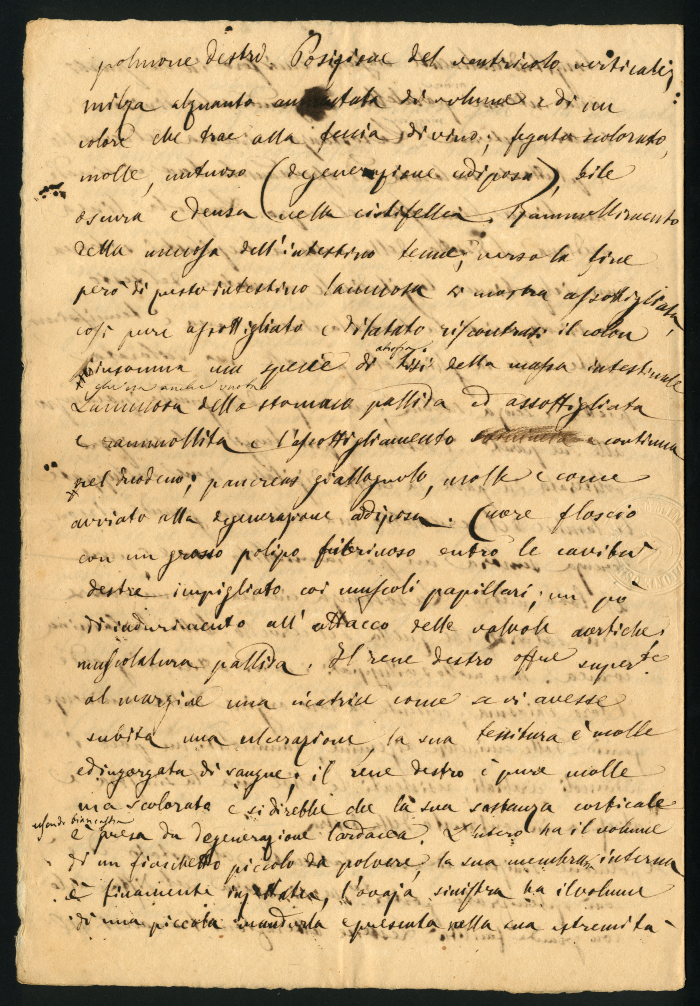 polmone destro. Posizione del ventricolo verticale;
milza alquanto aumentata di volume e di un
colore che trae alla feccia di vino; fegato scolorato,
molle, untuoso (degenerazione adiposa), bile
oscura e densa nella cistifellea. Rammollimento
della mucosa dell'intestino tenue; verso la fine
però di questo intestino la mucosa si mostra assottigliata,
così pure assottigliato e dilatato riscontrasi il colon
insomma una specie di atrofia tisi della massa intestinale
anche
La mucosa dello stomaco pallida ed assottigliata
e rammollita e l'assottigliamento continua
nel duodeno; pancreas giallognolo, molle e come
avviato alla degenerazione adiposa. Cuore floscio
con un grosso polipo fibrinoso entro le cavità
destre impigliato coi muscoli papillari; un po'
di indurimento all'attacco delle valvole aortiche;
muscolatura pallida. Il rene destro offre superte
al margine una cicatrice come se vi avesse
subita una ulcerazione, la sua tessitura è molle
ed ingorgata di sangue; il rene destro è pure molle
ma scolorato e si direbbe che la sua sostanza corticale
biancastra
è presa da degenerazione lardacea. L'utero ha il volume
di un fiaschetto piccolo da polvere, la sua membrana interna
è finamente iniettata, l'ovaja sinistra ha il volume
di una piccola mandorla e presenta nella sua estremità